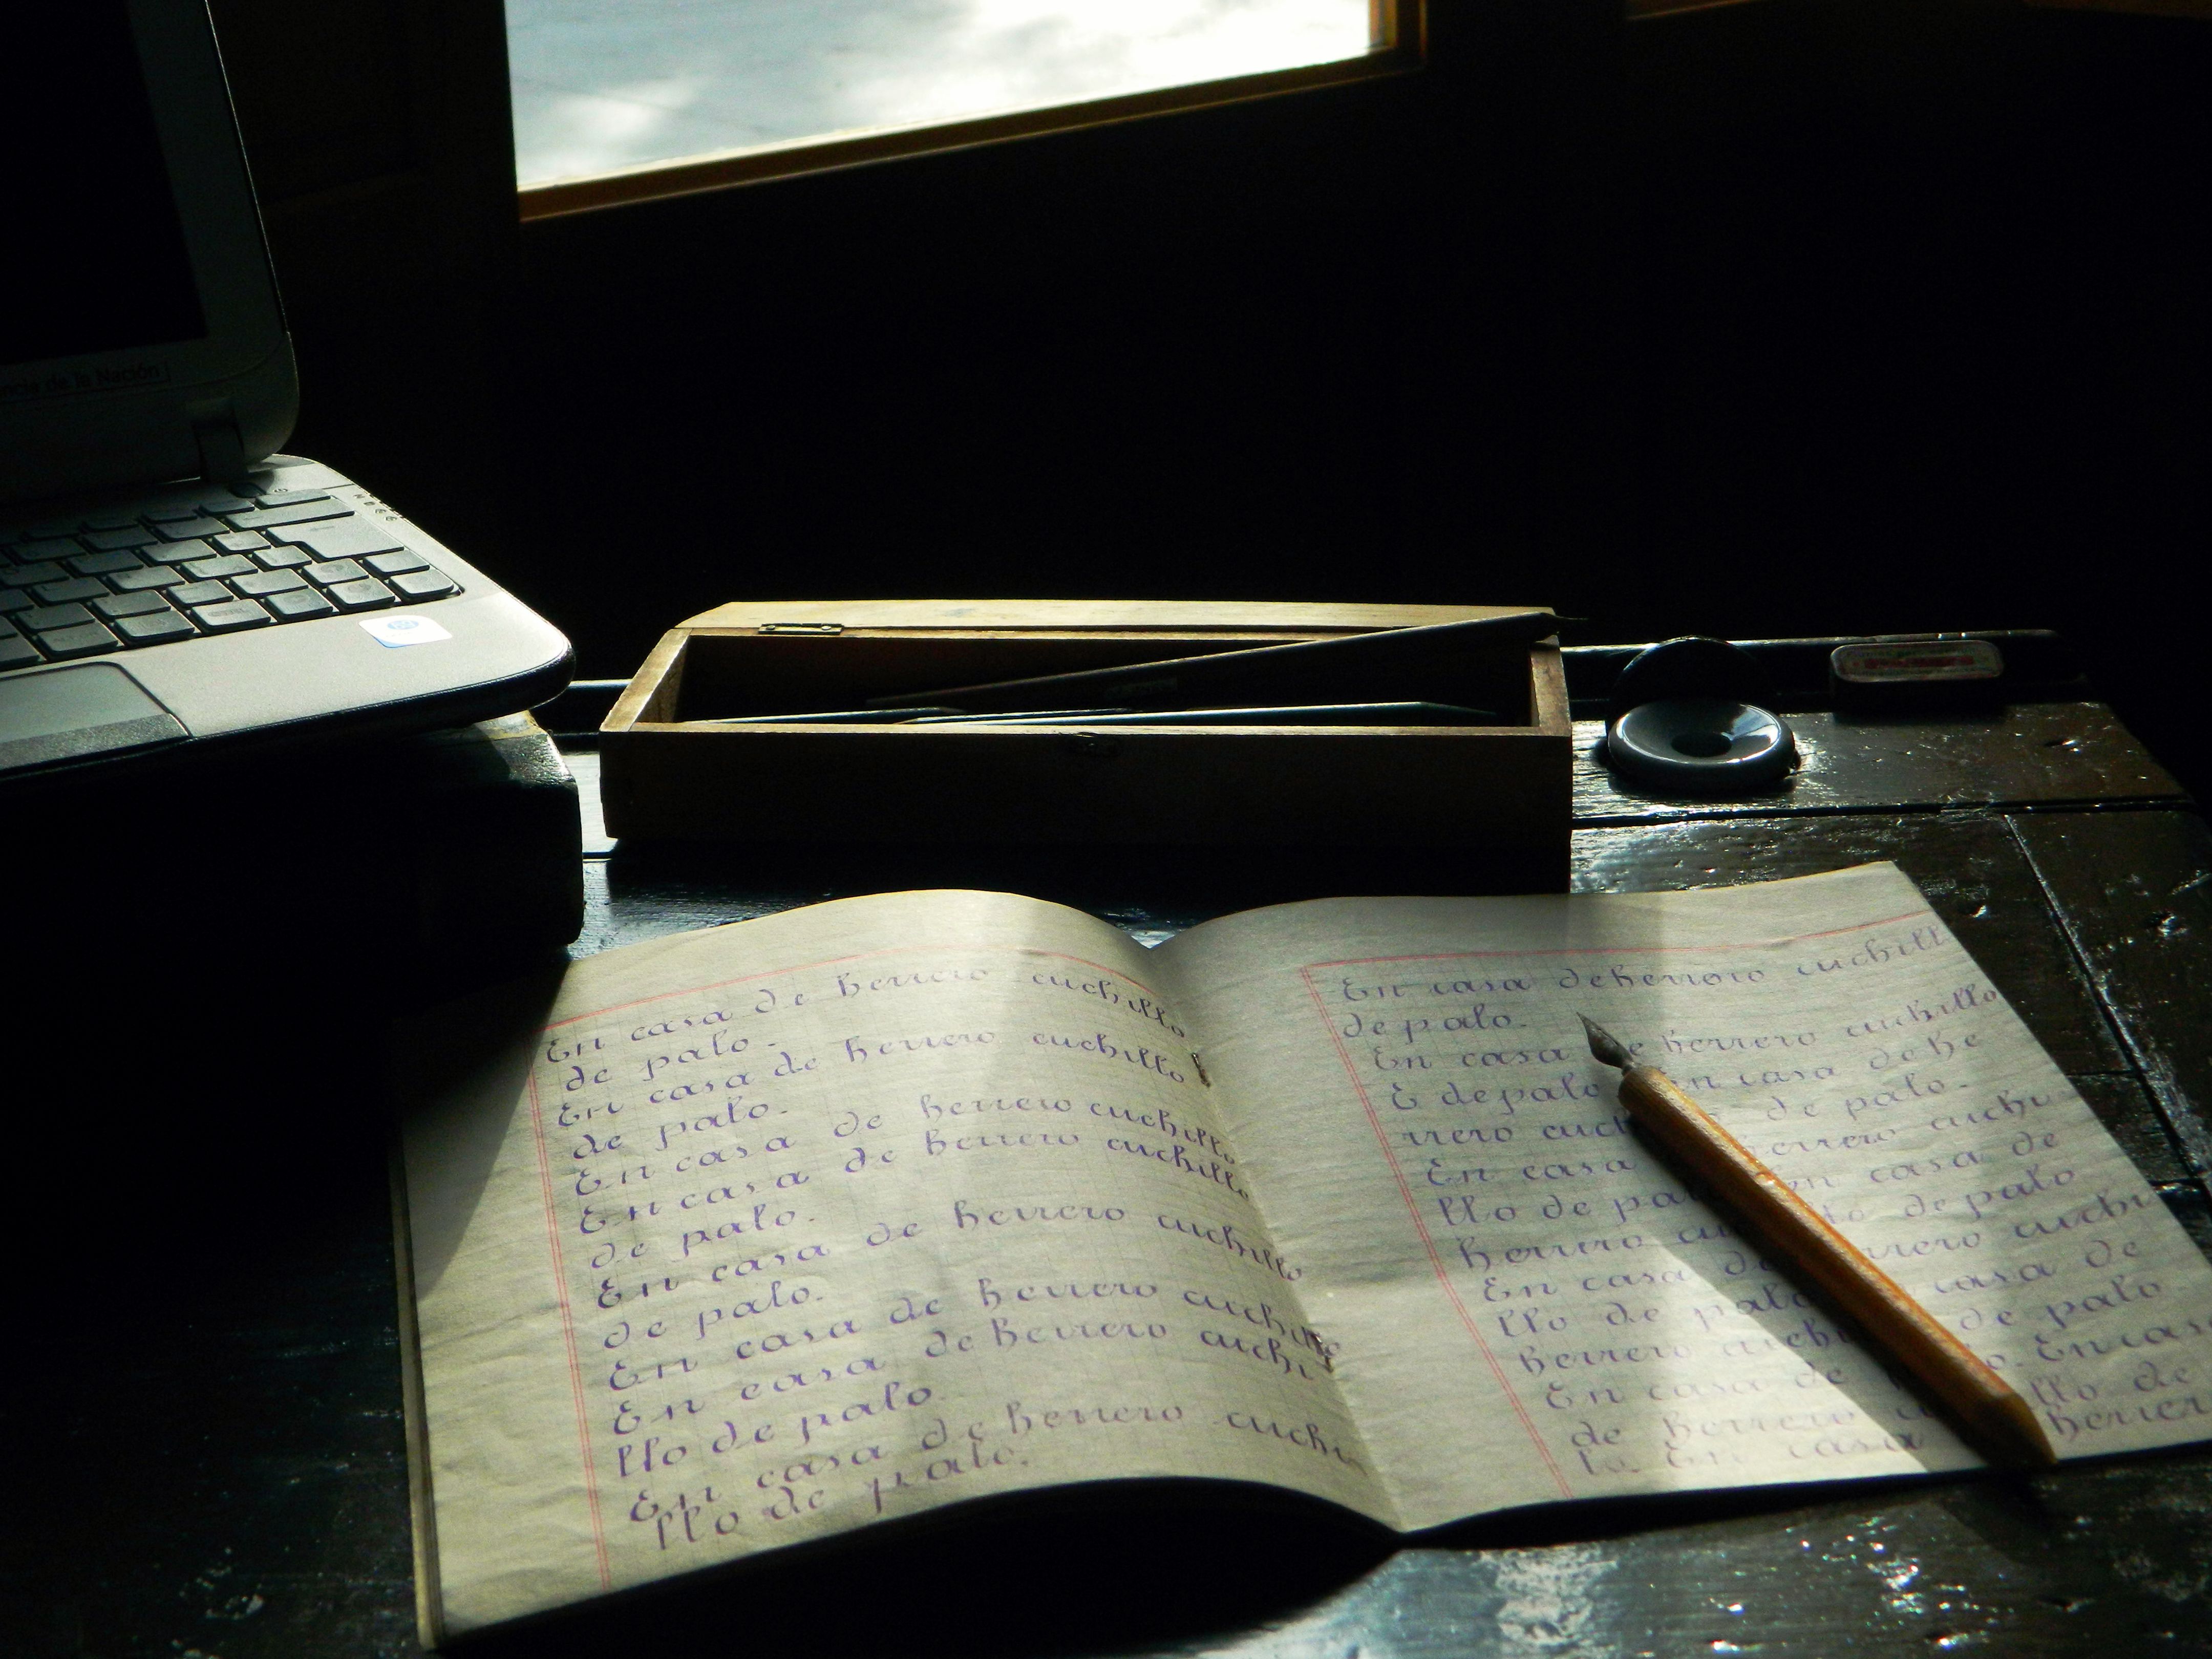 de la Nación
En casa de herrero cuchillo
de palo.
En casa de herrero cuchillo
de palo.
En casa de herrero cuchillo
En casa de herrero cuchillo
de palo.
En casa de herrero cuchillo
de palo.
En casa de herrero cuchillo
En casa de herrero cuchi
llo de palo.
En casa de herrero cuchi
llo de palo.
En casa de herrero cuchill
de palo.
En casa de herrero cuchillo
E de palo En casa de he
rrero de palo.
En casa herrero cuchi
llo de En casa de
herrero de palo
En casa rrero cuchi
llo de palo casa de
herrero de palo.
En casa de En cas
de herrero llo de
lo. En casa herrer